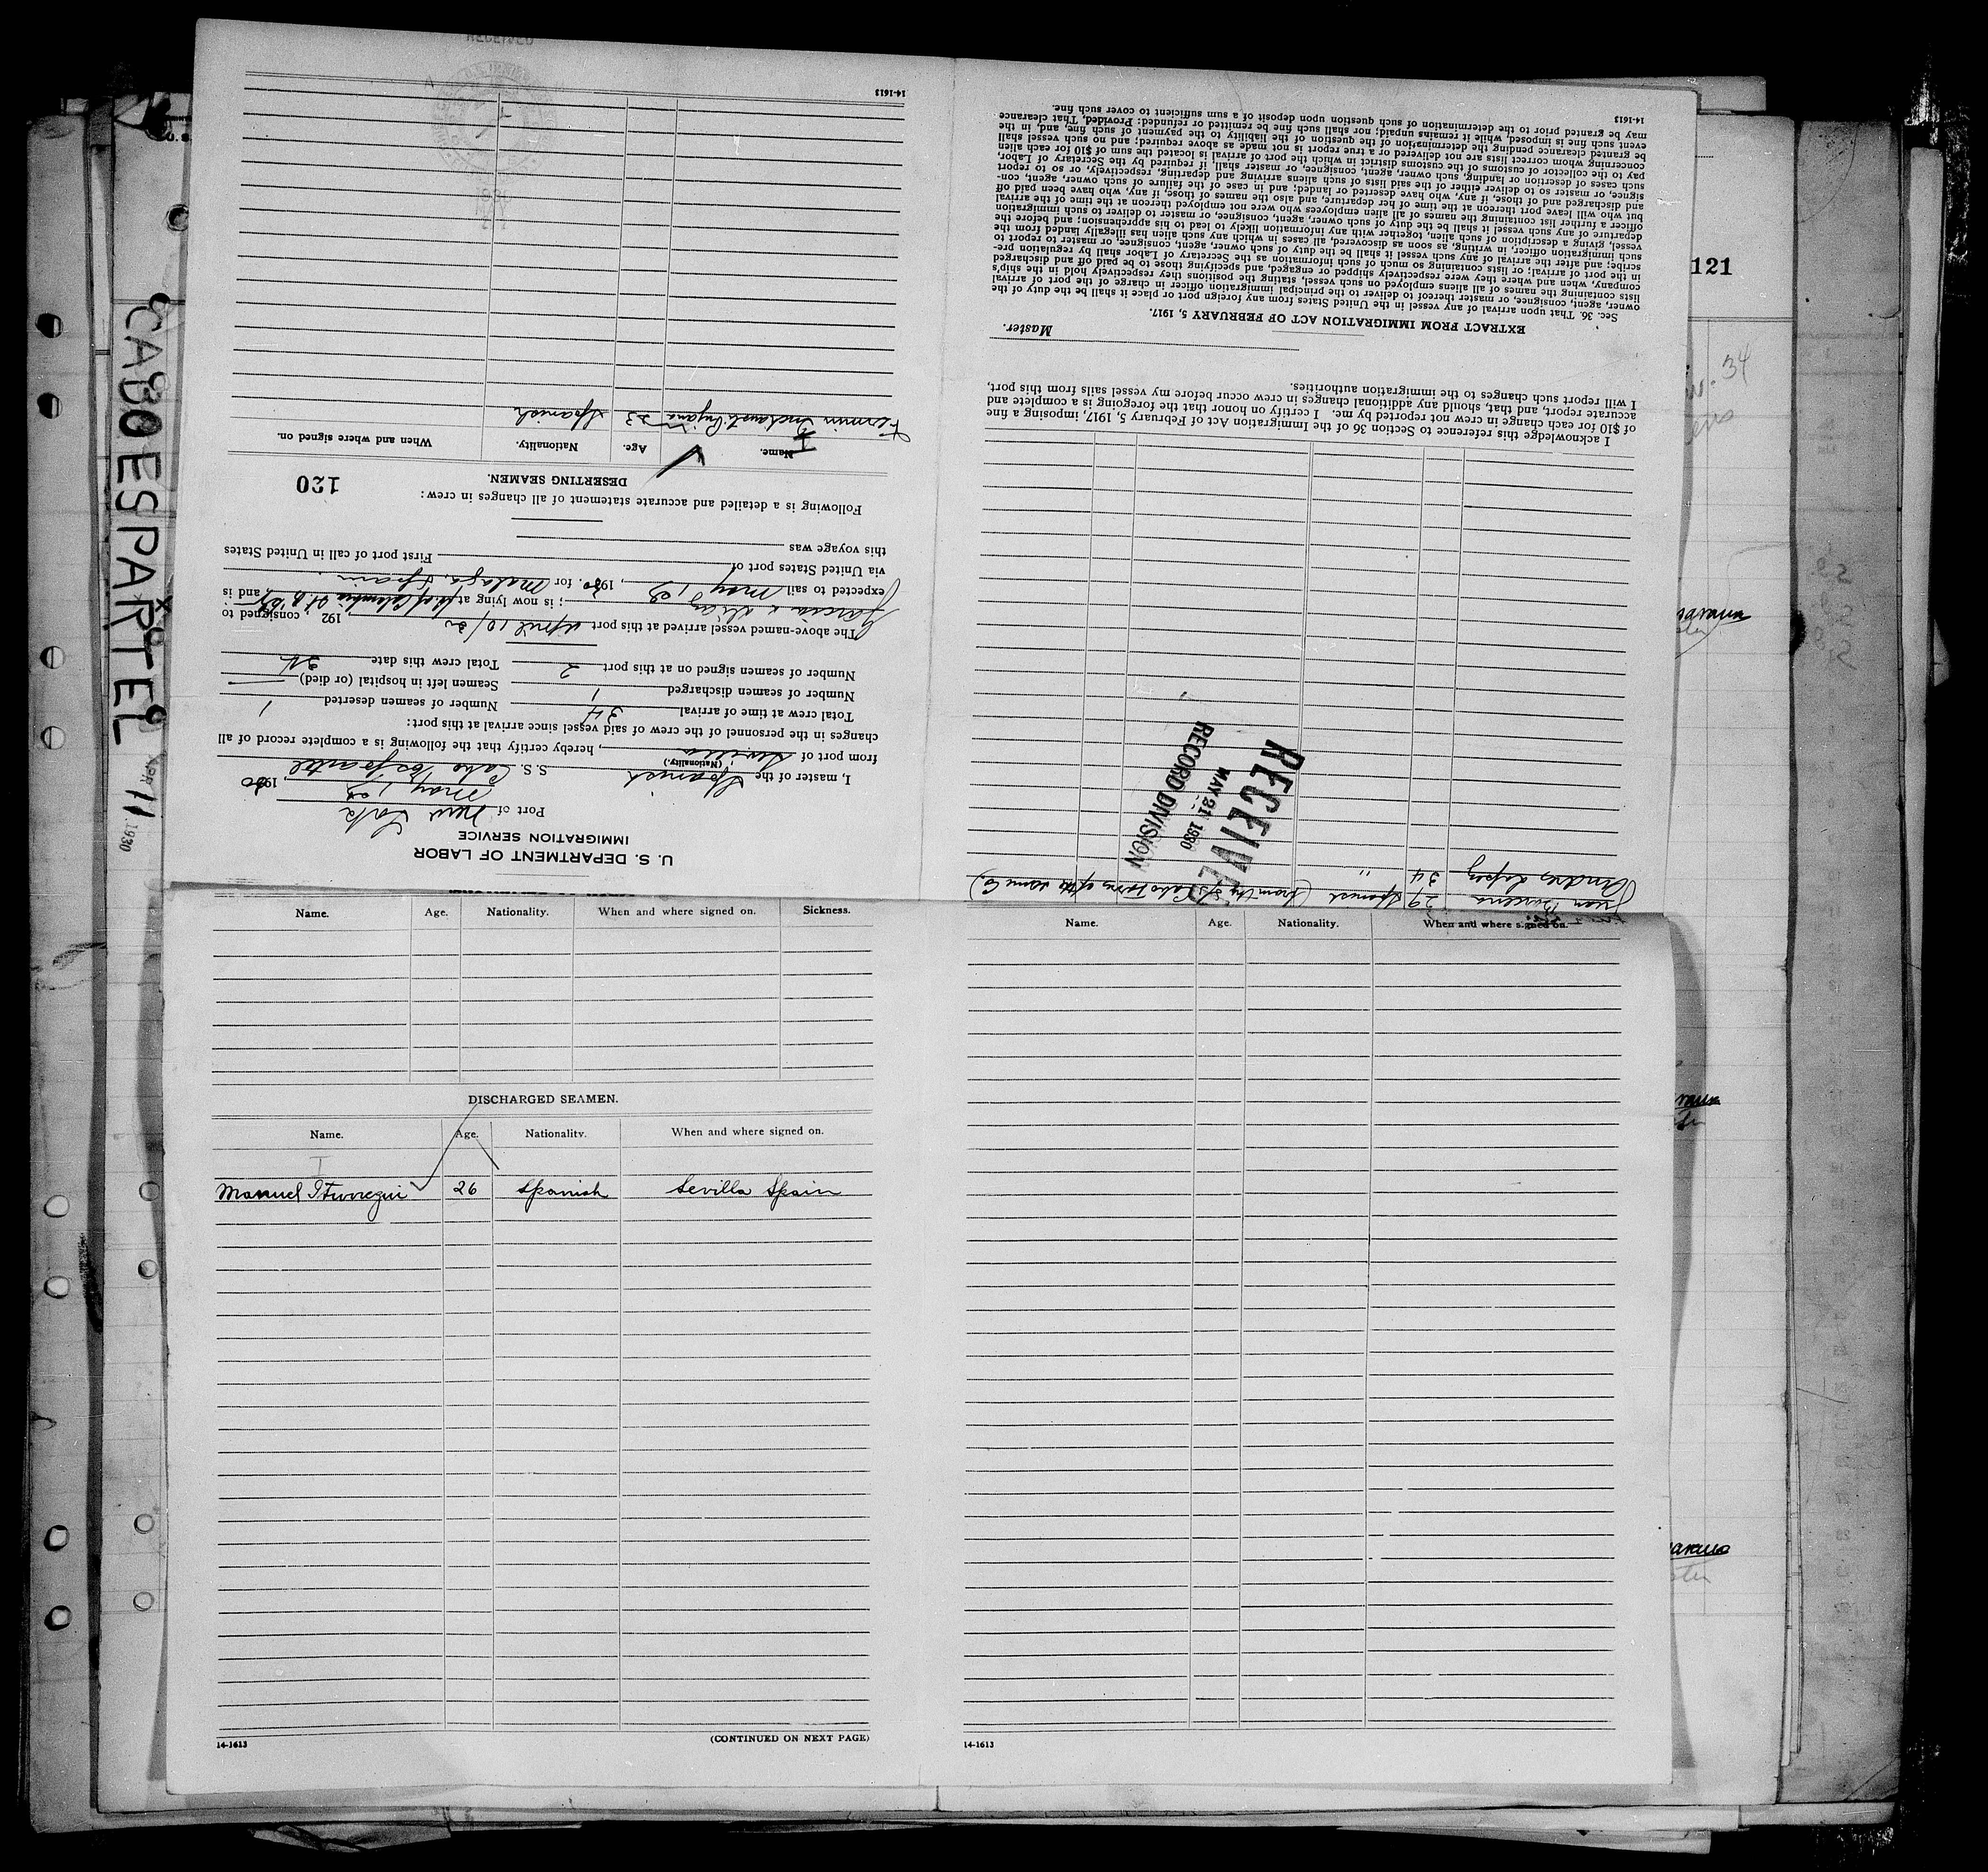 U. S. DEPARTMENT OF LABOR
IMMIGRATION SERVICE
Port of New York
May 1, 1930
I, master of the Spanish S.S. Cabo Espartel
(Nationality.)
from port of Sevilla, hereby certify that the following is a complete record of all
changes in the personnel of the crew of said vessel since arrival at this port:
Total crew at time of arrival 34 Number of seamen deserted 1
Number of seamen discharged 1 Seamen left in hospital (or died)
Number of seamen signed on at this port 2 Total crew this date 34
The above-named vessel arrived at this port April 10/30, 192 , consigned to
Garcia & Diaz; is now lying at of Columbia St. and is
expected to sail May 1, 1930. for Malaga, Spain.
via United States port of First port of call in United States
this voyage was
Following is a detailed and accurate statement of all changes in crew:
120
DESERTING SEAMEN.
Name. Age. Nationality. When and where signed on.
Fermin 23 Spanish
14-1613
Juan Barcena 29 Spanish (from the s/s Cabo Torres of the same Co)
Andres Lopez 34 "
RECEIVED
MAY 21 1930
RECORD DIVISION
I acknowledge this reference to Section 36 of the Immigration Act of February 5, 1917, imposing a fine
of $10 for each change in crew not reported by me. I certify on honor that the foregoing is a complete and
accurate report, and that, should any additional changes in crew occur before my vessel sails from this port,
I will report such changes to the immigration authorities.
Master.
EXTRACT FROM IMMIGRATION ACT OF FEBRUARY 5, 1917.
Sec. 36. That upon arrival of any vessel in the United States from any foreign port or place it shall be the duty of the
owner, agent, consignee, or master thereof to deliver to the principal immigration officer in charge of the port of arrival
lists containing the names of all aliens employed on such vessel, stating the positions they respectively hold in the ship's
company, when and where they were respectively shipped or engaged, and specifying those to be paid off and discharged
in the port of arrival; or lists containing so much of such information as the Secretary of Labor shall by regulation pre-
scribe; and after the arrival of any such vessel it shall be the duty of such owner, agent, consignee, or master to report to
such immigration officer, in writing, as soon as discovered, all cases in which any such alien has illegally landed from the
vessel, giving a description of such alien, together with any information likely to lead to his apprehension; and before the
departure of any such vessel it shall be the duty of such owner, agent, consignee, or master to deliver to such immigration
officer a further list containing the names of all alien employees who were not employed thereon at the time of the arrival
but who will leave port thereon at the time of her departure, and also the names of those, if any, who have been paid off
and discharged and of those, if any, who have deserted or landed; and in case of the failure of such owner, agent, con-
signee, or master so to deliver either of the said lists of such aliens arriving and departing, respectively, or so to report
such cases of desertion or landing, such owner, agent, consignee, or master shall, if required by the Secretary of Labor,
pay to the collector of customs of the customs district in which the port of arrival is located the sum of $10 for each alien
concerning whom correct lists are not delivered or a true report is not made as above required; and no such vessel shall
be granted clearance pending the determination of the question of the liability to the payment of such fine, and, in the
event such fine is imposed, while it remains unpaid; nor shall such fine be remitted or refunded: Provided, That clearance
may be granted prior to the determination of such question upon deposit of a sum sufficient to cover such fine.
14-1613
CABO ESPARTEL
APR 11 1930
121
34
Name. Age. Nationality. When and where signed on. Sickness.
DISCHARGED SEAMEN.
Name. Age. Nationality. When and where signed on.
Manuel Iturregui 26 Spanish Sevilla Spain
(CONTINUED ON NEXT PAGE)
14-1613
Name. Age. Nationality. When and where signed on.
14-1613